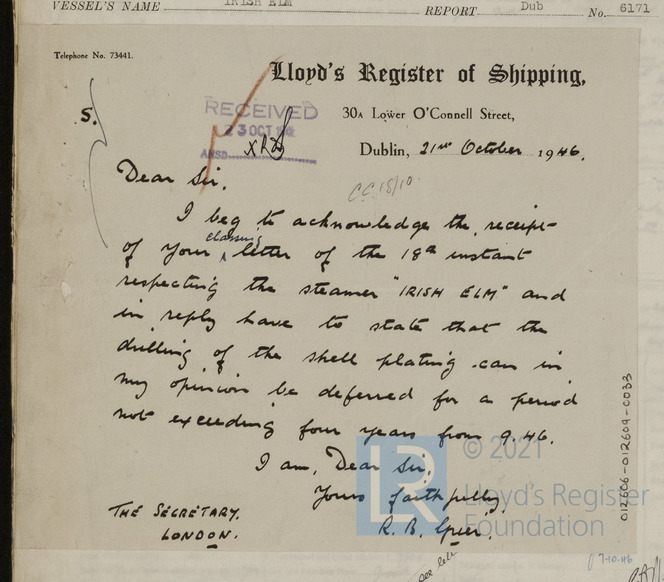 VESSEL'S NAME IRISH ELM REPORT Dub No. 6171
Telephone No. 73441.
Lloyd's Register of Shipping,
30A Lower O'Connell Street,
Dublin, 21st October 1946.
S.
RECEIVED
23 OCT
ANSD
CC 18/10
Dear Sir,
I beg to acknowledge the receipt
of your classing letter of the 18th instant
respecting the steamer "IRISH ELM" and
in reply have to state that the
drilling of the shell plating can in
my opinion be deferred for a period
not exceeding four years from 9.46.
I am, Dear Sir,
Yours faithfully,
R. B.
THE SECRETARY.
LONDON.
012606-012609-0033
LR
© 2021
Lloyd's Register
Foundation
7-10-46